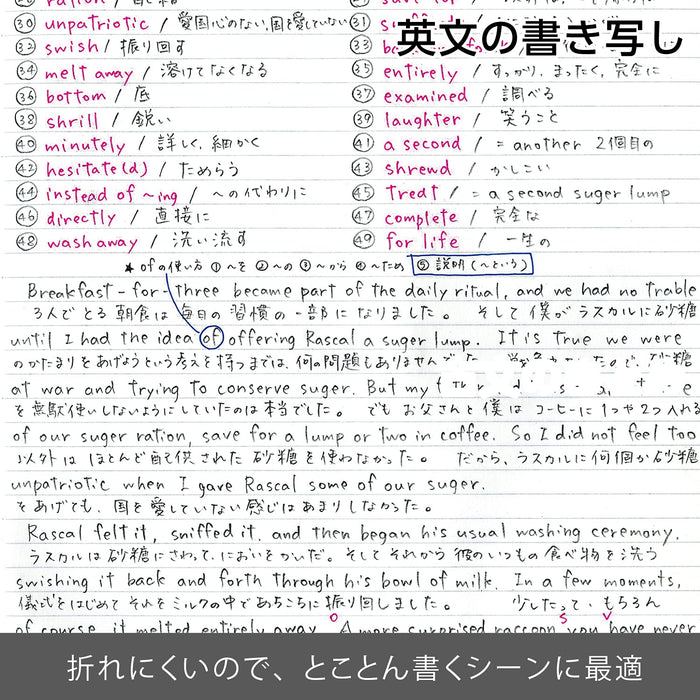 英文の書き写し
㉚ unpatriotic / 愛国心のない,国を愛していない ㉛
㉜ swish / 振り回す ㉝
㉞ melt away / 溶けてなくなる ㉟ entirely / すっかり, まったく, 完全に
㊱ bottom / 底 ㊲ examined / 調べる
㊳ shrill / 鋭い ㊴ laughter / 笑うこと
㊵ minutely / 詳しく, 細かく ㊶ a second / = another 2個目の
㊷ hesitate(d) / ためらう ㊸ shrewd / かしこい
㊹ instead of ~ing / ~の代わりに ㊺ Treat / = a second suger lump
㊻ directly / 直接に ㊼ complete / 完全な
㊽ wash away / 洗い流す ㊾ for life / 一生の
★ ofの使い方 ①~を ②~の ③~から ④~ため ⑤説明(~という)
Breakfast-for-three became part of the daily ritual, and we had no trable
3人でとる朝食は毎日の習慣の一部になりました。 そして僕がラスカルに砂糖
until I had the idea of offering Rascal a suger lump. It is true we were
のかたまりをあげようという考えを持つまでは、何の問題もありませんでした
at war and trying to conserve suger. But my
を無駄使いしないようにしていたのは本当でした。 でもお父さんと僕はコーヒーに1つや2つ入れる
of our suger ration, save for a lump or two in coffee. So I did not feel too
以外はほとんど配給された砂糖を使わなかった。 だから、ラスカルに何個か砂糖
unpatriotic when I gave Rascal some of our suger.
をあげても、国を愛していない感じはあまりしなかった。
Rascal felt it, sniffed it, and then began his usual washing ceremony,
ラスカルは砂糖にさわって、においをかいだ。そしてそれから彼のいつもの食べ物を洗う
swishing it back and forth through his bowl of milk. In a few moments,
儀式をはじめてそれをミルクの中であちこちに振り回しました。 少したって、もちろん
of course, it melted entirely away. A more surprised raccoon you have never
折れにくいので、とことん書くシーンに最適